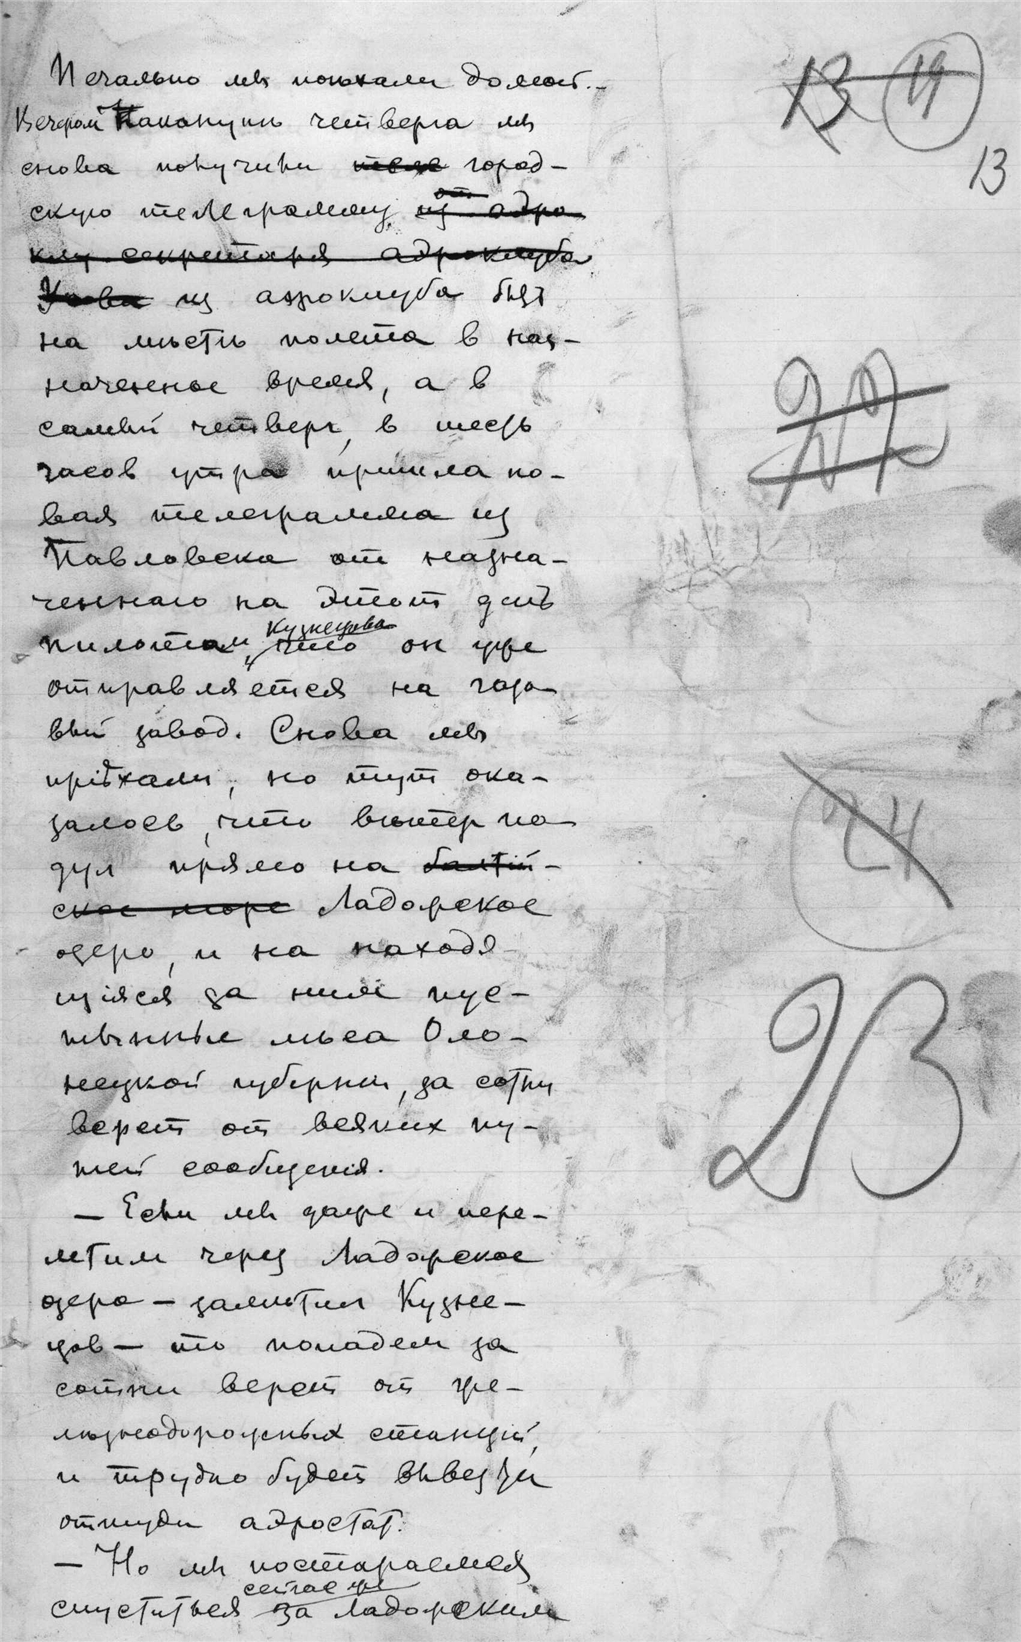 Печально мы поѣхали домой.
Вечером Накануне четверга мы
снова получили теле город-
скую телеграмму из от аэро
клу секретаря аэроклуба
из аэроклуба быть
на мѣстѣ полета в наз-
наченное время, а в
самый четверг, в шесть
часов утра пришла но-
вая телеграмма из
Павловска от назна-
ченнаго на этот день
пилотом Кузнецова что он уже
отправляется на газо
вый завод. Снова мы
приѣхали, но тут ока-
залось, что вѣтер по
дул прямо на балтій-
ское море Ладожское
озеро, и на находя
щіяся за ним пус-
тынныe лѣса Оло-
нецкой губерніи, за сотни
верст от всяких пу-
тей сообщенія.
— Если мы даже и пере-
летим через Ладожское
озеро — замѣтил Кузне-
цов — то попадем за
сотни верст от же-
лѣзнодорожных станцій,
и трудно будет вывезти
оттуда аэростат.
— Но мы постараемся
спуститься сейчас же за Ладожским
13 19
13
27
24
23